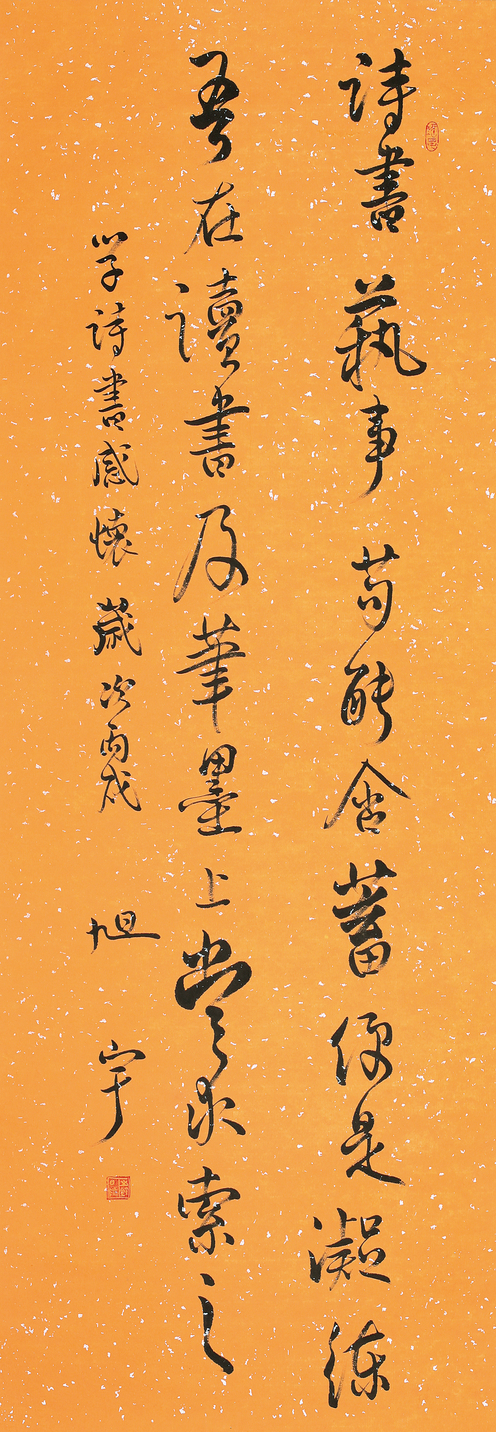 詩書藝事苟能含蓄便是凝練
吾在讀書及筆墨上常求索之
學詩書感懷歲次丙戌
旭宇